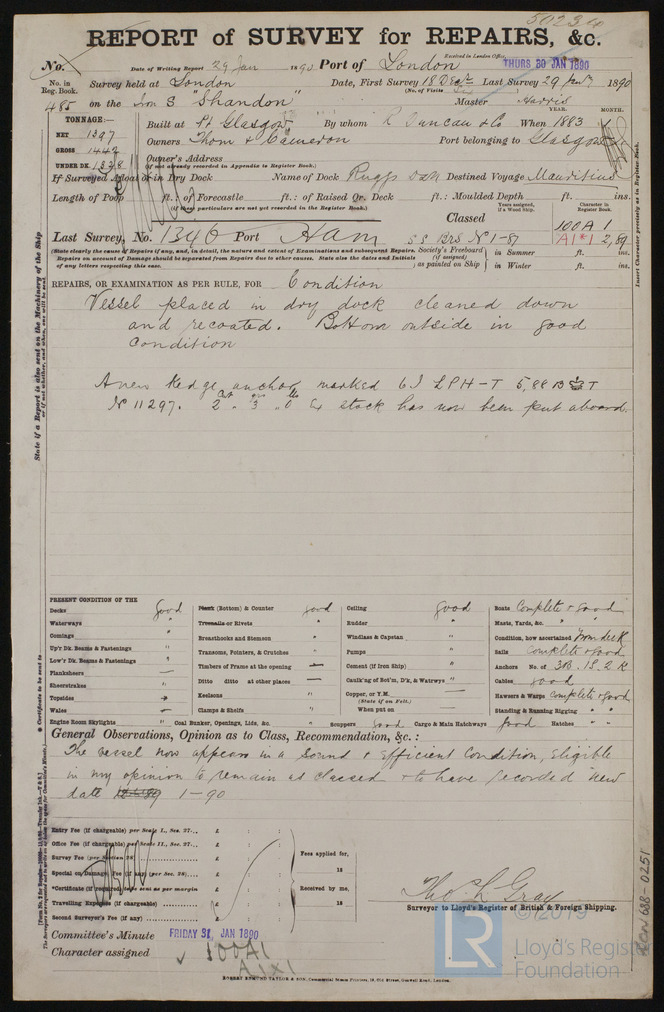 50234
REPORT of SURVEY for REPAIRS, &c.
Received in London Office
No. Date of Writing Report 29 Jan 1890 Port of London THURS 30 JAN 1890
No. in Reg. Book. Survey held at London Date, First Survey 18 Dec Last Survey 29 Jan 1890
(No. of Visits )
485 on the Iron S "Shandon" Master Harris
TONNAGE:— YEAR. MONTH.
NET 1397 Built at Pt Glasgow By whom R Duncan & Co When 1883
GROSS 1442 Owners Thom & Cameron Port belonging to Glasgow
UNDER DK. 1328 Owner's Address
(if not already recorded in Appendix to Register Book.)
If Surveyed Afloat or in Dry Dock Name of Dock Destined Voyage Mauritius
Length of Poop ft.: of Forecastle ft.: of Raised Qr. Deck ft.: Moulded Depth ft. ins.
(if these particulars are not yet recorded in the Register Book.)
Years assigned, if a Wood Ship. Character in Register Book.
Classed 100A 1
Last Survey, No. 1346 Port Ham SS Brs No 1-87 A1*1 2,89
(State clearly the cause of Repairs if any, and, in detail, the nature and extent of Examinations and subsequent Repairs.
Repairs on account of Damage should be separated from Repairs due to other causes. State also the dates and Initials
of any letters respecting this case.
Society's Freeboard (if assigned) as painted on Ship in Summer ft. ins.
in Winter ft. ins.
REPAIRS, OR EXAMINATION AS PER RULE, FOR Condition
Vessel placed in dry dock cleaned down
and recoated. Bottom outside in good
condition
A new Kedge anchor marked 61 LPH-T 5,88 B T
No 11297. 2 cwt 3 qrs 0 lbs Ex stock has now been put aboard.
PRESENT CONDITION OF THE
Decks good
Waterways "
Comings "
Up'r Dk. Beams & Fastenings "
Low'r Dk. Beams & Fastenings "
Planksheers —
Sheerstrakes "
Topsides "
Wales —
Engine Room Skylights "
Plank (Bottom) & Counter good
Treenails or Rivets "
Breasthooks and Stemson "
Transoms, Pointers, & Crutches "
Timbers of Frame at the opening —
Ditto ditto at other places —
Keelsons "
Clamps & Shelfs "
Coal Bunker, Openings, Lids, &c. "
Ceiling good
Rudder "
Windlass & Capstan "
Pumps "
Cement (if Iron Ship) "
Caulk'ng of Bot'm, D'k, & Watrwys "
Copper, or Y.M. —
(State if on Felt.)
When put on —
Scuppers good Cargo & Main Hatchways good Hatches "
Boats Complete & good
Masts, Yards, &c. " "
Condition, how ascertained from deck
Sails Complete & good
Anchors No. of 3B. 1S. 2K
Cables good
Hawsers & Warps complete & good
Standing & Running Rigging " "
General Observations, Opinion as to Class, Recommendation, &c.:
The vessel now appears in a sound & efficient condition, eligible
in my opinion to remain as classed & to have recorded new
date 1-90
Entry Fee (if chargeable) per Scale I., Sec. 27... £ : :
Office Fee (if chargeable) per Scale II., Sec. 27... £ : :
Survey Fee (per Section 28) £ : :
Special on Damage Fee (if any) (per Sec. 28) £ : :
*Certificate (if required) to be sent as per margin £ : :
Travelling Expenses (if chargeable) £ : :
Second Surveyor's Fee (if any) £ : :
Fees applied for,
18
Received by me,
18
Thos. L Gray
Surveyor to Lloyd's Register of British & Foreign Shipping.
Committee's Minute FRIDAY 31 JAN 1890
Character assigned 100A1
A1x1
ROBERT EDMUND TAYLOR & SON, Commercial Steam Printers, 19, Old Street, Goswell Road, London.
State if a Report is also sent on the Machinery of the Ship
or if not whether, and when, one will be sent.
Certificate to be sent to
Insert Character precisely as in Register Book.
LR
©2019
Lloyd's Register
Foundation